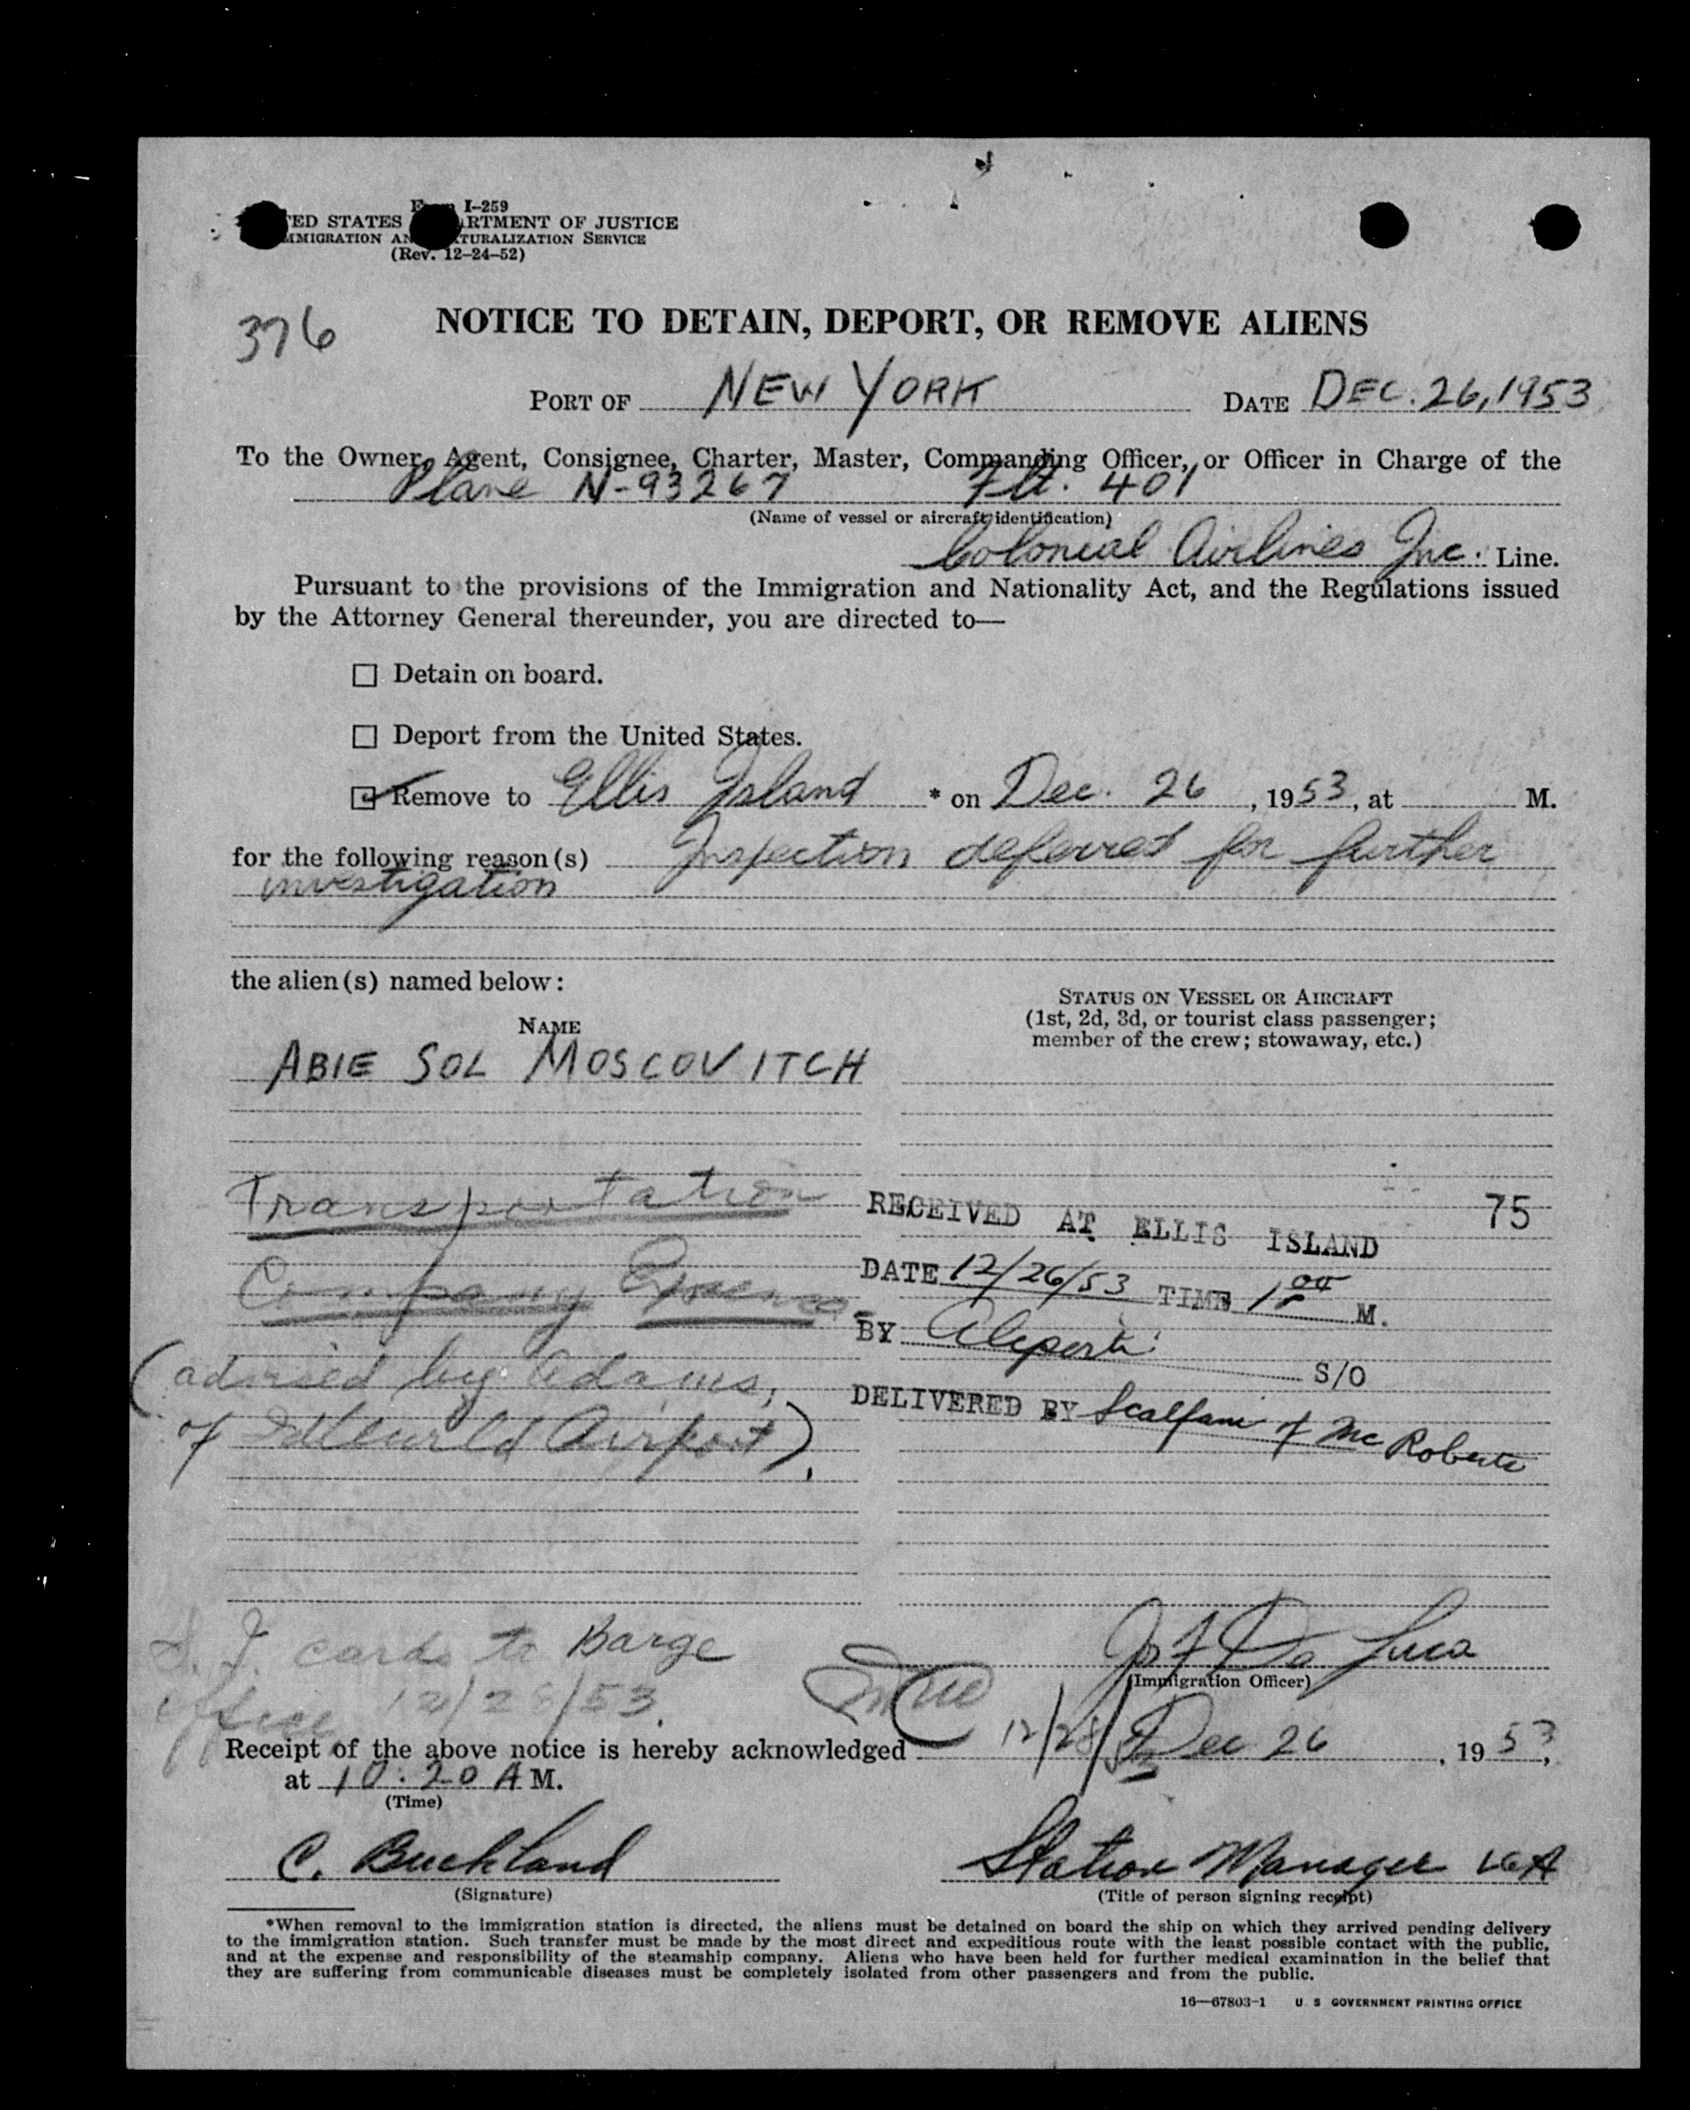 Form I-259
UNITED STATES DEPARTMENT OF JUSTICE
IMMIGRATION AND NATURALIZATION SERVICE
(Rev. 12-24-52)
376
NOTICE TO DETAIN, DEPORT, OR REMOVE ALIENS
PORT OF NEW YORK DATE DEC. 26, 1953
To the Owner, Agent, Consignee, Charter, Master, Commanding Officer, or Officer in Charge of the
Plane N-93267 Flt. 401
(Name of vessel or aircraft identification)
Colonial Airlines Inc. Line.
Pursuant to the provisions of the Immigration and Nationality Act, and the Regulations issued
by the Attorney General thereunder, you are directed to—
☐ Detain on board.
☐ Deport from the United States.
☑ Remove to Ellis Island * on Dec. 26, 1953, at M.
for the following reason(s) Inspection deferred for further
investigation
the alien(s) named below:
NAME
STATUS ON VESSEL OR AIRCRAFT
(1st, 2d, 3d, or tourist class passenger;
member of the crew; stowaway, etc.)
ABIE SOL MOSCOVITCH
Transportation
Company Expense
(advised by Adams,
of Idlewild Airport).
75
RECEIVED AT ELLIS ISLAND
DATE 12/26/53 TIME 1 00 M.
BY
S/O
DELIVERED BY Scalfani of McRoberts
S. I. cards to Barge
office 12/28/53.
Jos F De Luca
(Immigration Officer)
12/28/53
Receipt of the above notice is hereby acknowledged Dec 26, 1953,
at 10:20 A M.
(Time)
C. Buckland
(Signature)
Station Manager LGA
(Title of person signing receipt)
*When removal to the immigration station is directed, the aliens must be detained on board the ship on which they arrived pending delivery
to the immigration station. Such transfer must be made by the most direct and expeditious route with the least possible contact with the public,
and at the expense and responsibility of the steamship company. Aliens who have been held for further medical examination in the belief that
they are suffering from communicable diseases must be completely isolated from other passengers and from the public.
16—67803-1 U S GOVERNMENT PRINTING OFFICE